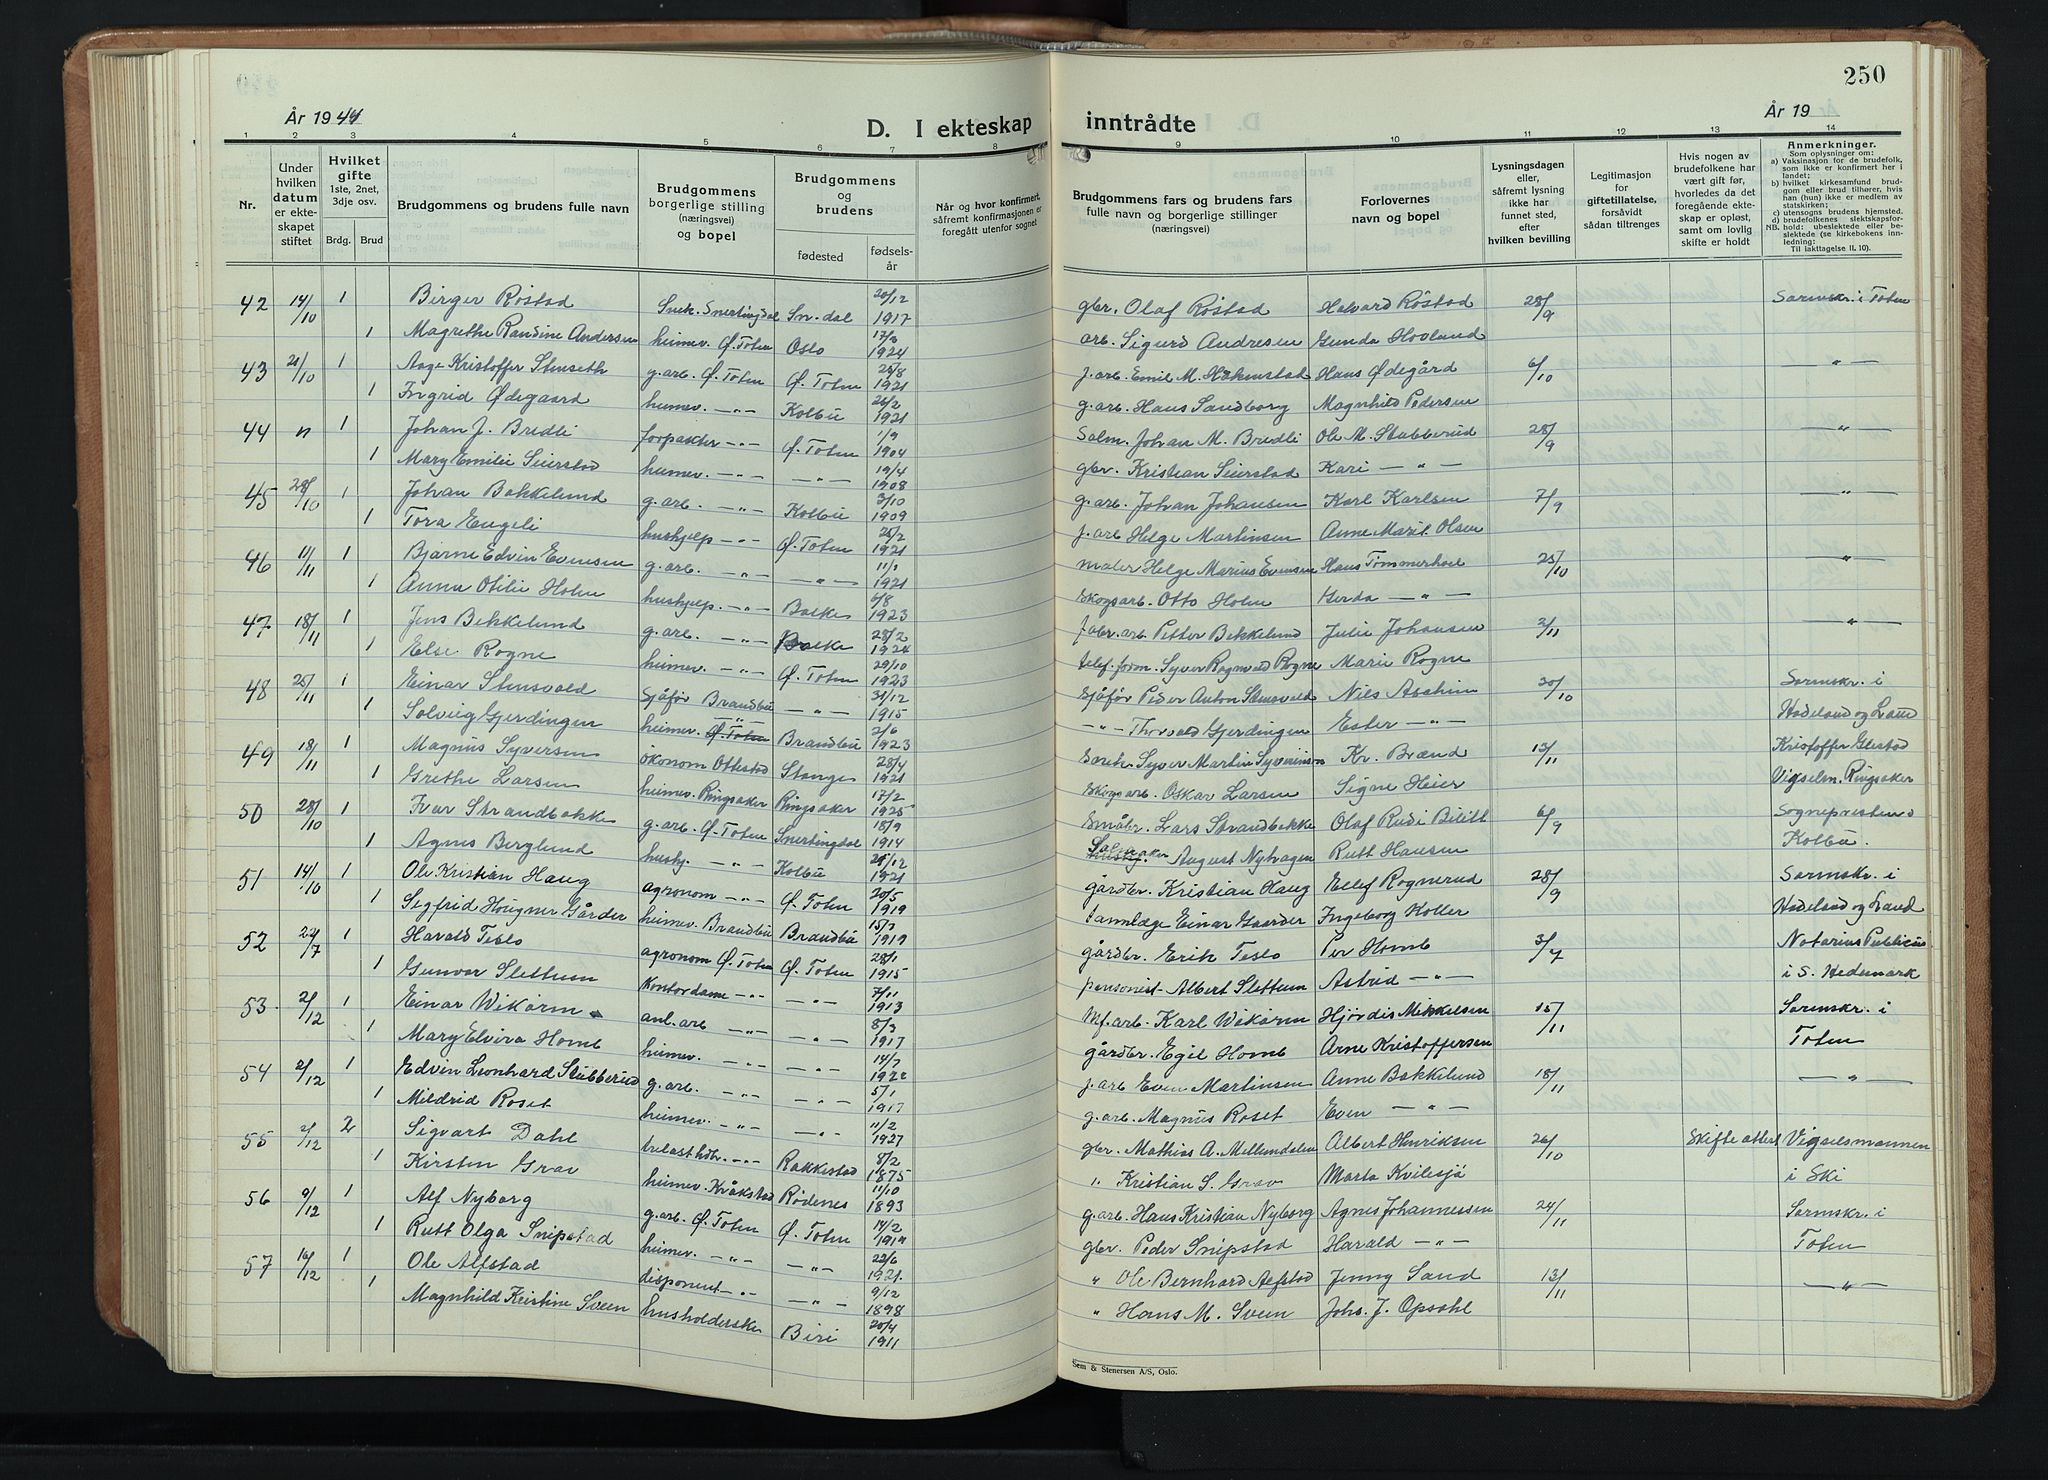 250
År 1944
D. I ekteskap inntrådte
År 19
1 2 3 4 5 6 7 8 9 10 11 12 13 14
Nr.
Under hvilken datum er ekteskapet stiftet
Hvilket gifte 1ste, 2net, 3dje osv.
Brdg. Brud
Brudgommens og brudens fulle navn
Brudgommens borgerlige stilling (næringsvei) og bopel
Brudgommens og brudens
fødested
fødselsår
Når og hvor konfirmert, såfremt konfirmasjonen er foregått utenfor sognet
Brudgommens fars og brudens fars fulle navn og borgerlige stillinger (næringsvei)
Forlovernes navn og bopel
Lysningsdagen eller, såfremt lysning ikke har funnet sted, efter hvilken bevilling
Legitimasjon for giftetillatelse, forsåvidt sådan tiltrenges
Hvis nogen av brudefolkene har vært gift før, hvorledes da det foregående ekteskap er opløst, samt om lovlig skifte er holdt
Anmerkninger.
Som oplysninger om:
a) Vaksinasjon for de brudefolk, som ikke er konfirmert her i landet;
b) hvilket kirkesamfund brudgom eller brud tilhører, hvis han (hun) ikke er medlem av statskirken;
c) utensogns brudens hjemsted.
d) brudefolkenes slektskapsforhold: ubeslektede eller beslektede (se kirkebokens innledning:
NB.
Til iakttagelse II, 10).
42 14/10 1 Birger Røstad Snek. Snertingdal Sn-dal 20/12 1917 gbr. Olaf Røstad Halvard Røstad 28/9 Sorenskr. i Toten
1 Magrethe Randine Andersen heimev. Ø. Toten Oslo 1924 arb. Sigurd Andresen Gunda Hovland
43 21/10 1 Aage Kristoffer Stenseth g. arb. Ø. Toten Ø. Toten 25/8 1921 j. arb. Emil M. Holmstad Hans Ødegård 6/10 — " —
1 Ingrid Ødegaard heimev. — " — Kolbu 26/2 1921 g. arb. Hans Sandborg Magnhild Pedersen
44 " 1 Johan J. Bredli forpakter — " — Ø. Toten 1/9 1904 Salm. Johan M. Bredli Ole M. Stubberud 28/9 — " —
1 Mary Emilie Seierstad heimev. — " — — " — 19/4 1908 gbr. Kristian Seierstad Kari — " —
45 28/10 1 Johan Bakkelund g. arb. — " — Kolbu 3/10 1909 g. arb. Johan Johansen Karl Karlsen 7/9 — " —
1 Tora Engeli hushjelp — " — Ø. Toten 25/2 1921 j. arb. Helge Martinsen Anne Marit Olsen
46 11/11 1 Bjarne Edvin Evensen g. arb. — " — — " — 11/1 1921 maler Helge Marius Evensen Hans Tømmerhol 25/10 — " —
1 Anna Otilie Holm hushjelp. — " — Balke 6/8 1923 Skogsarb. Otto Holm Gerda — " —
47 18/11 1 Jens Bekkelund g. arb. — " — Balke 28/2 1924 Jobr. arb. Petter Bekkelund Julie Johansen 2/11 — " —
1 Else Rogne heimev. — " — Ø. Toten 29/10 1923 telef. form. Syver Rognvald Rogne Marie Rogne
48 25/11 1 Einar Stensvold Sjåfør Brandbu — " — 31/12 1915 Sjåfør Peder Anton Stensvold Nils Aschim 20/10 Sorenskr. i
1 Solveig Gjerdingen heimev. — " — Ø. Toten Brandbu 2/6 1923 — " — Thorvald Gjerdingen Ester — " — Hadeland og Land
49 18/11 1 Magnus Syversen økonom Ottestad Stange 28/4 1921 Syver Martin Syverinsen Kr. Brænd 13/11 Kristoffer Glestad
1 Grethe Larsen heimev. Ringsaker Ringsaker 17/2 1925 Skogsarb. Oskar Larsen Signe Heier Vigselm. Ringsaker
50 28/10 1 Ivar Strandbakke g. arb. Ø. Toten Snertingdal 18/9 1914 Småbr. Lars Strandbakke Olaf Rudi Bilitt 6/9 Sogneprestens
1 Agnes Berglund hushj. — " — Kolbu 1921 Salmaker August Nyhagen Rutt Hansen Kolbu.
51 14/10 1 Ole Kristian Haug agronom — " — Ø. Toten 20/5 1919 gårdbr. Kristian Haug Ellef Rognerud 28/9 Sorenskr. i
1 Segfrid Hougner Gårder heimev. Brandbu Brandbu 15/3 1919 tannlæge Einar Gaarder Ingeborg Koller Hadeland og Land
52 22/7 1 Harald Teslo agronom Ø. Toten Ø. Toten 28/1 1915 gårdbr. Erik Teslo Per Homb 3/7 Notarius Publicus
1 Gunvor Slettum kontordame — " — — " — 7/11 1913 pensonist Albert Slettum Astrid — " — i S. Hedemark
53 2/12 1 Einar Wikørm anl. arb — " — — " — 8/3 1917 Mf. arb. Karl Wikørm Hjørdis Mikkelsen 15/11 Sorenskr. i
1 Mary Elvira Homb heimev. — " — — " — 14/7 1922 gårdbr. Egil Homb Arne Kristoffersen Toten
54 2/12 1 Edvin Leonhard Stubberud g. arb. — " — — " — 5/1 1917 j. arb Even Martinsen Anne Bakkelund 18/11 — " —
1 Mildrid Roset heimev. — " — — " — 11/2 1927 g. arb. Magnus Roset Even — " —
55 2/12 2 Sigvart Dahl trelasthdlr. — " — Rakkestad 8/2 1875 gbr. Mathias A. Mellumdalen Albert Henriksen 26/10 Skifte attest Vigselsmannen
1 Kirsten Grav heimev. Kråkstad Rødenes 11/10 1893 " Kristian S. Grav Marta Kvilesjø i Ski
56 9/12 1 Alf Nyborg g. arb. Ø. Toten Ø. Toten 14/2 g. arb. Hans Kristian Nyborg Agnes Johannessen 24/11 Sorenskr. i
1 Rutt Olga Snipstad heimev. — " — — " — 22/6 1921. gbr. Peder Snipstad Harald — " — Toten
57 16/12 1 Ole Alfstad disponent — " — — " — 9/12 1898 " Ole Bernhard Alfstad Jenny Sand 13/11 — " —
1 Magnhild Kristine Sveen husholderske Biri 20/4 1911 " Hans M. Sveen Johs. J. Opsahl
Sem & Stenersen A/S, Oslo.